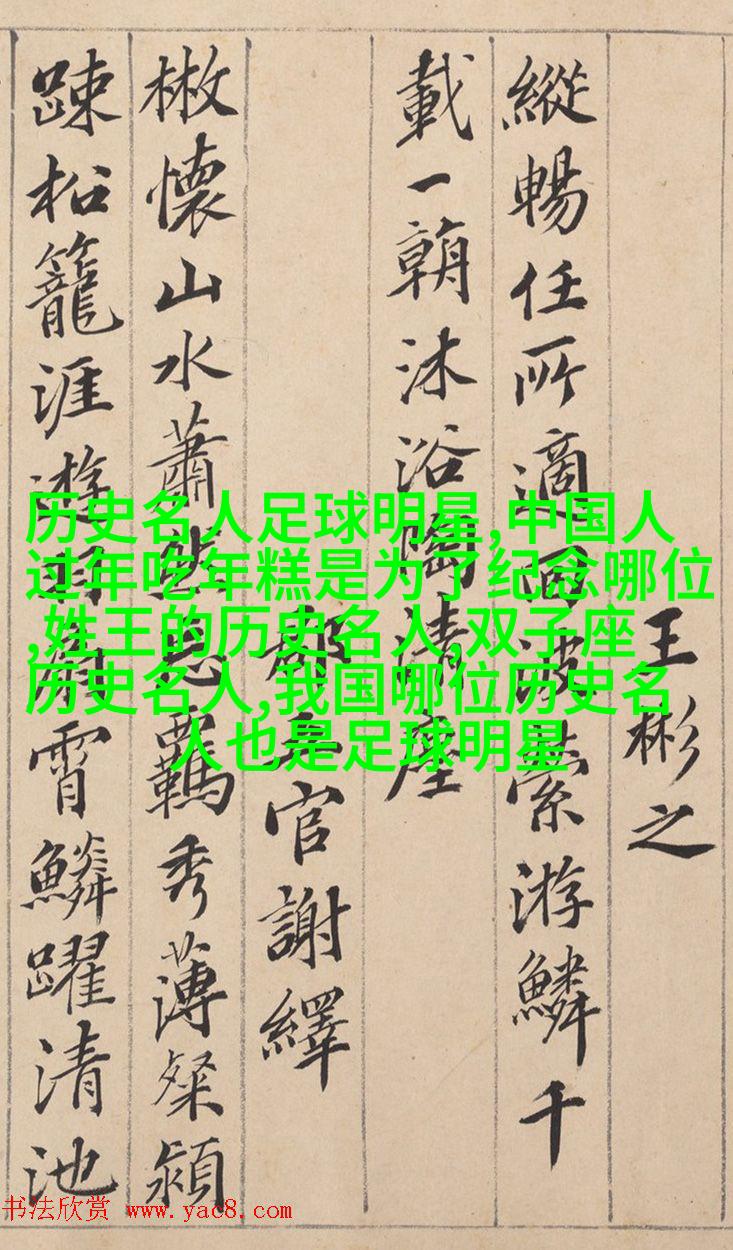 王彬之
縱暢任所適回波縈游鱗千
載一朝沐浴陶清塵
郡五官謝繹
散懷山水蕭然忘羈秀薄粲穎
踈松籠涯遊羽扇霄鱗躍清池
历史名人足球明星,中国人
过年吃年糕是为了纪念哪位
,姓王的历史名人,双子座
历史名人,我国哪位历史名
人也是足球明星
书法欣赏 www.yac8.com